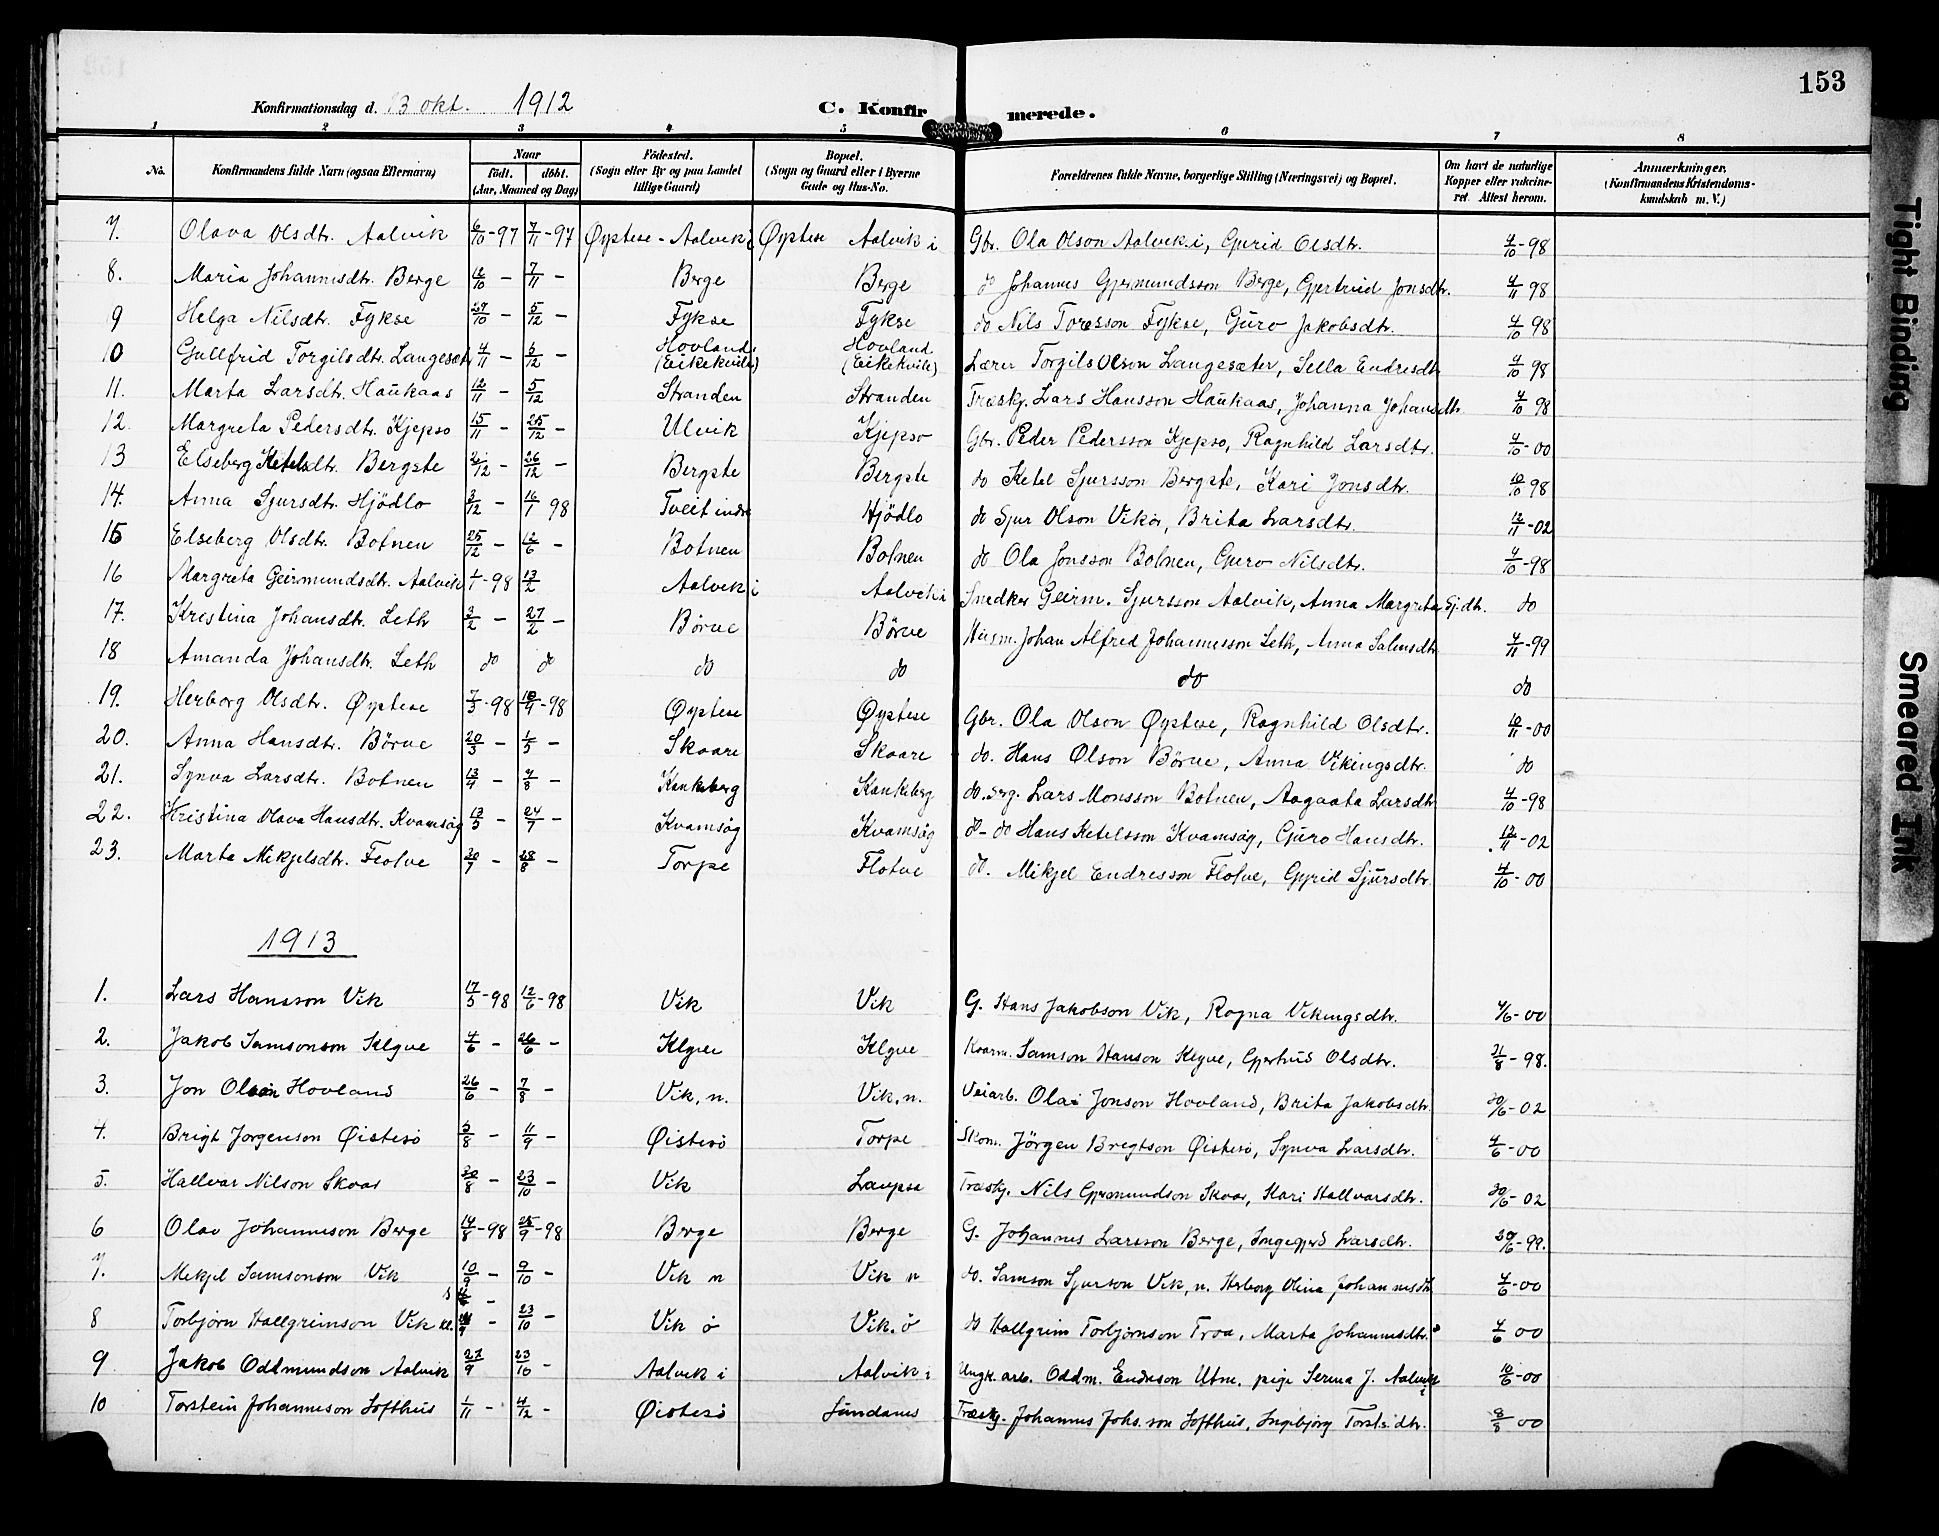 153
Konfirmationsdag d. 13 okt. 1912 C. Konfirmerede.
1 2 3 4 5 6 7 8
No. Konfirmandens fulde Navn (ogsaa Efternavn) Naar födt. döbt. (Aar, Maaned og Dag) Födested. (Sogn eller By og paa Landet tillige Gaard) Bopæl. (Sogn og Gaard eller i Byerne Gade og Hus-No. Forældrenes fulde Navne, borgerlige Stilling (Næringsvei) og Bopæl. Om havt de naturlige Kopper eller vakcineret. Attest herom. Anmerkninger. (Konfirmandens Kristendomskundskab m. V.)
7. Olava Olsdtr. Aalvik 6/10-97 7/11-97 Øystese - Aalvik i Øystese Aalvik i Gbr. Ola Olson Aalvik i, Gyrid Olsdtr. 4/10-98
8. Maria Johannisdtr. Berge 12/10 - 7/11 - Berge Berge do Johannes Gjermundsson Berge, Gjertrud Jonsdtr. 4/11 98
9 Helga Nilsdtr. Fykse 29/10 - 5/12 - Fykse Fykse do Nils Toresson Fykse, Guro Jakobsdtr. 4/10 98
10 Gullfrid Torgilsdtr. Langesæter 4/11 - 5/12 - Hovland (Eikekvile) Hovland (Eikekvile) Lærer Torgils Olson Langesæter, Sella Endresdtr 4/10 98
11. Marta Larsdtr. Haukaas 12/11 - 5/12 - Stranden Stranden Træskj. Lars Hansson Haukaas, Johanna Johansdtr. 4/10 98
12. Margreta Pedersdtr. Kjepso 15/11 - 25/12 - Ulvik Kjepso Gbr. Peder Pedersson Kjepso, Ragnhild Larsdtr. 4/10-00
13 Elseberg Ketelsdtr. Bergste 2/12 - 26/12 - Bergste Bergste do Ketel Sjursson Bergste, Kari Jonsdtr. 10/10 98
14. Anna Sjursdtr. Hjödlo 3/12 - 16/1 98 Tveit indre Hjödlo do Sjur Olson Vikör, Brita Larsdtr. 12/11-02
15 Elseberg Olsdtr. Botnen 25/12 - 12/6 - Botnen Botnen do Ola Jonsson Botnen, Guro Nilsdtr. 4/10-98
16 Margreta Geirmundsdtr. Aalvik 1/1-98 13/2 Aalvik i Aalvik i Snedker Geirm. Sjursson Aalvik, Anna Margreta Gj.dtr. do
17. Kristina Johansdtr. Leth 3/2 - 27/2 - Börve Börve Husm. Johan Alfred Johannesson Leth, Anna Salmsdtr 4/11-99
18 Amanda Johansdtr. Leth do do do do do do
19. Herborg Olsdtr. Øystese 7/3-98 10/4-98 Øystese Øystese Gbr. Ola Olson Øystese, Ragnhild Olsdtr. 10/11-00
20. Anna Hansdtr. Börve 20/3 - 1/5 - Skaare Skaare do. Hans Olson Börve, Anna Vikingsdtr. do
21. Synva Larsdtr. Botnen 13/4 - 7/8 - Kankeberg Kankeberg do. Lars Monsson Botnen, Aagaata Larsdtr 4/10-98
22. Kristina Olava Hansdtr. Kvamsøg 13/5 - 24/7 - Kvamsøg Kvamsøg do - do Hans Ketelsson Kvamsøg, Guro Hansdtr. 12/11-02
23. Marta Mikjelsdtr. Flotve 20/7 - 28/8 - Torpe Flotve do. Mikjel Endresson Flotve, Gyrid Sjursdtr. 4/10-00
1913
1. Lars Hansson Vik 17/5-98 12/6-98 Vik Vik G. Hans Jakobson Vik, Ragna Vikingsdtr. 4/6-00
2. Jakob Samsonson Klyve 4/6 - 26/6 - Klyve Klyve Kvarm. Samson Hanson Klyve, Gjertrud Olsdtr. 31/8-98.
3. Jon Olson Hovland 26/6 - 7/8 - Vik, n. Vik, n. Veiarb. Olai Jonson Hovland, Brita Jakobsdtr. 30/6-02
4. Brigt Jorgenson Øistesö 3/8 - 11/9 - Øistesö Torpe Skom. Jörgen Brigtson Øistesö, Synva Larsdtr. 4/6-00
5. Hallvar Nilson Skaar 20/8 - 23/10 - Vik Laupsa Træskj. Nils Gjermundson Skaar, Kari Hallvarsdtr. 30/6-02
6 Olav Johanneson Berge 14/8-98 25/9-98 Berge Berge G. Johannes Larsson Berge, Ingegjerd Larsdtr. 20/6-99.
7. Mikjel Samsonson Vik 10/9 - 9/10 - Vik n Vik n do. Samson Sjurson Vik, n. Herborg Olina Johannesdtr 4/6-00
8 Torbjörn Hallgrimson Vik 23/10 - Vik ö Vik. ö do Hallgrim Torbjörnson Troa, Marta Johannesdtr. 4/6 00
9 Jakob Oddmundson Aalvik 27/9 23/10 - Aalvik i Aalvik i Ungk. arb. Oddm. Endreson Utne. pige Serina J. Aalvik i 10/6-00
10 Torstein Johanneson Softhus 1/11 - 4/12 - Øistesö Sundanes Træskj. Johannes Johs.son Softhus, Ingebjörg Torsts.dtr. 8/8 00
Tight Binding
Smeared Ink